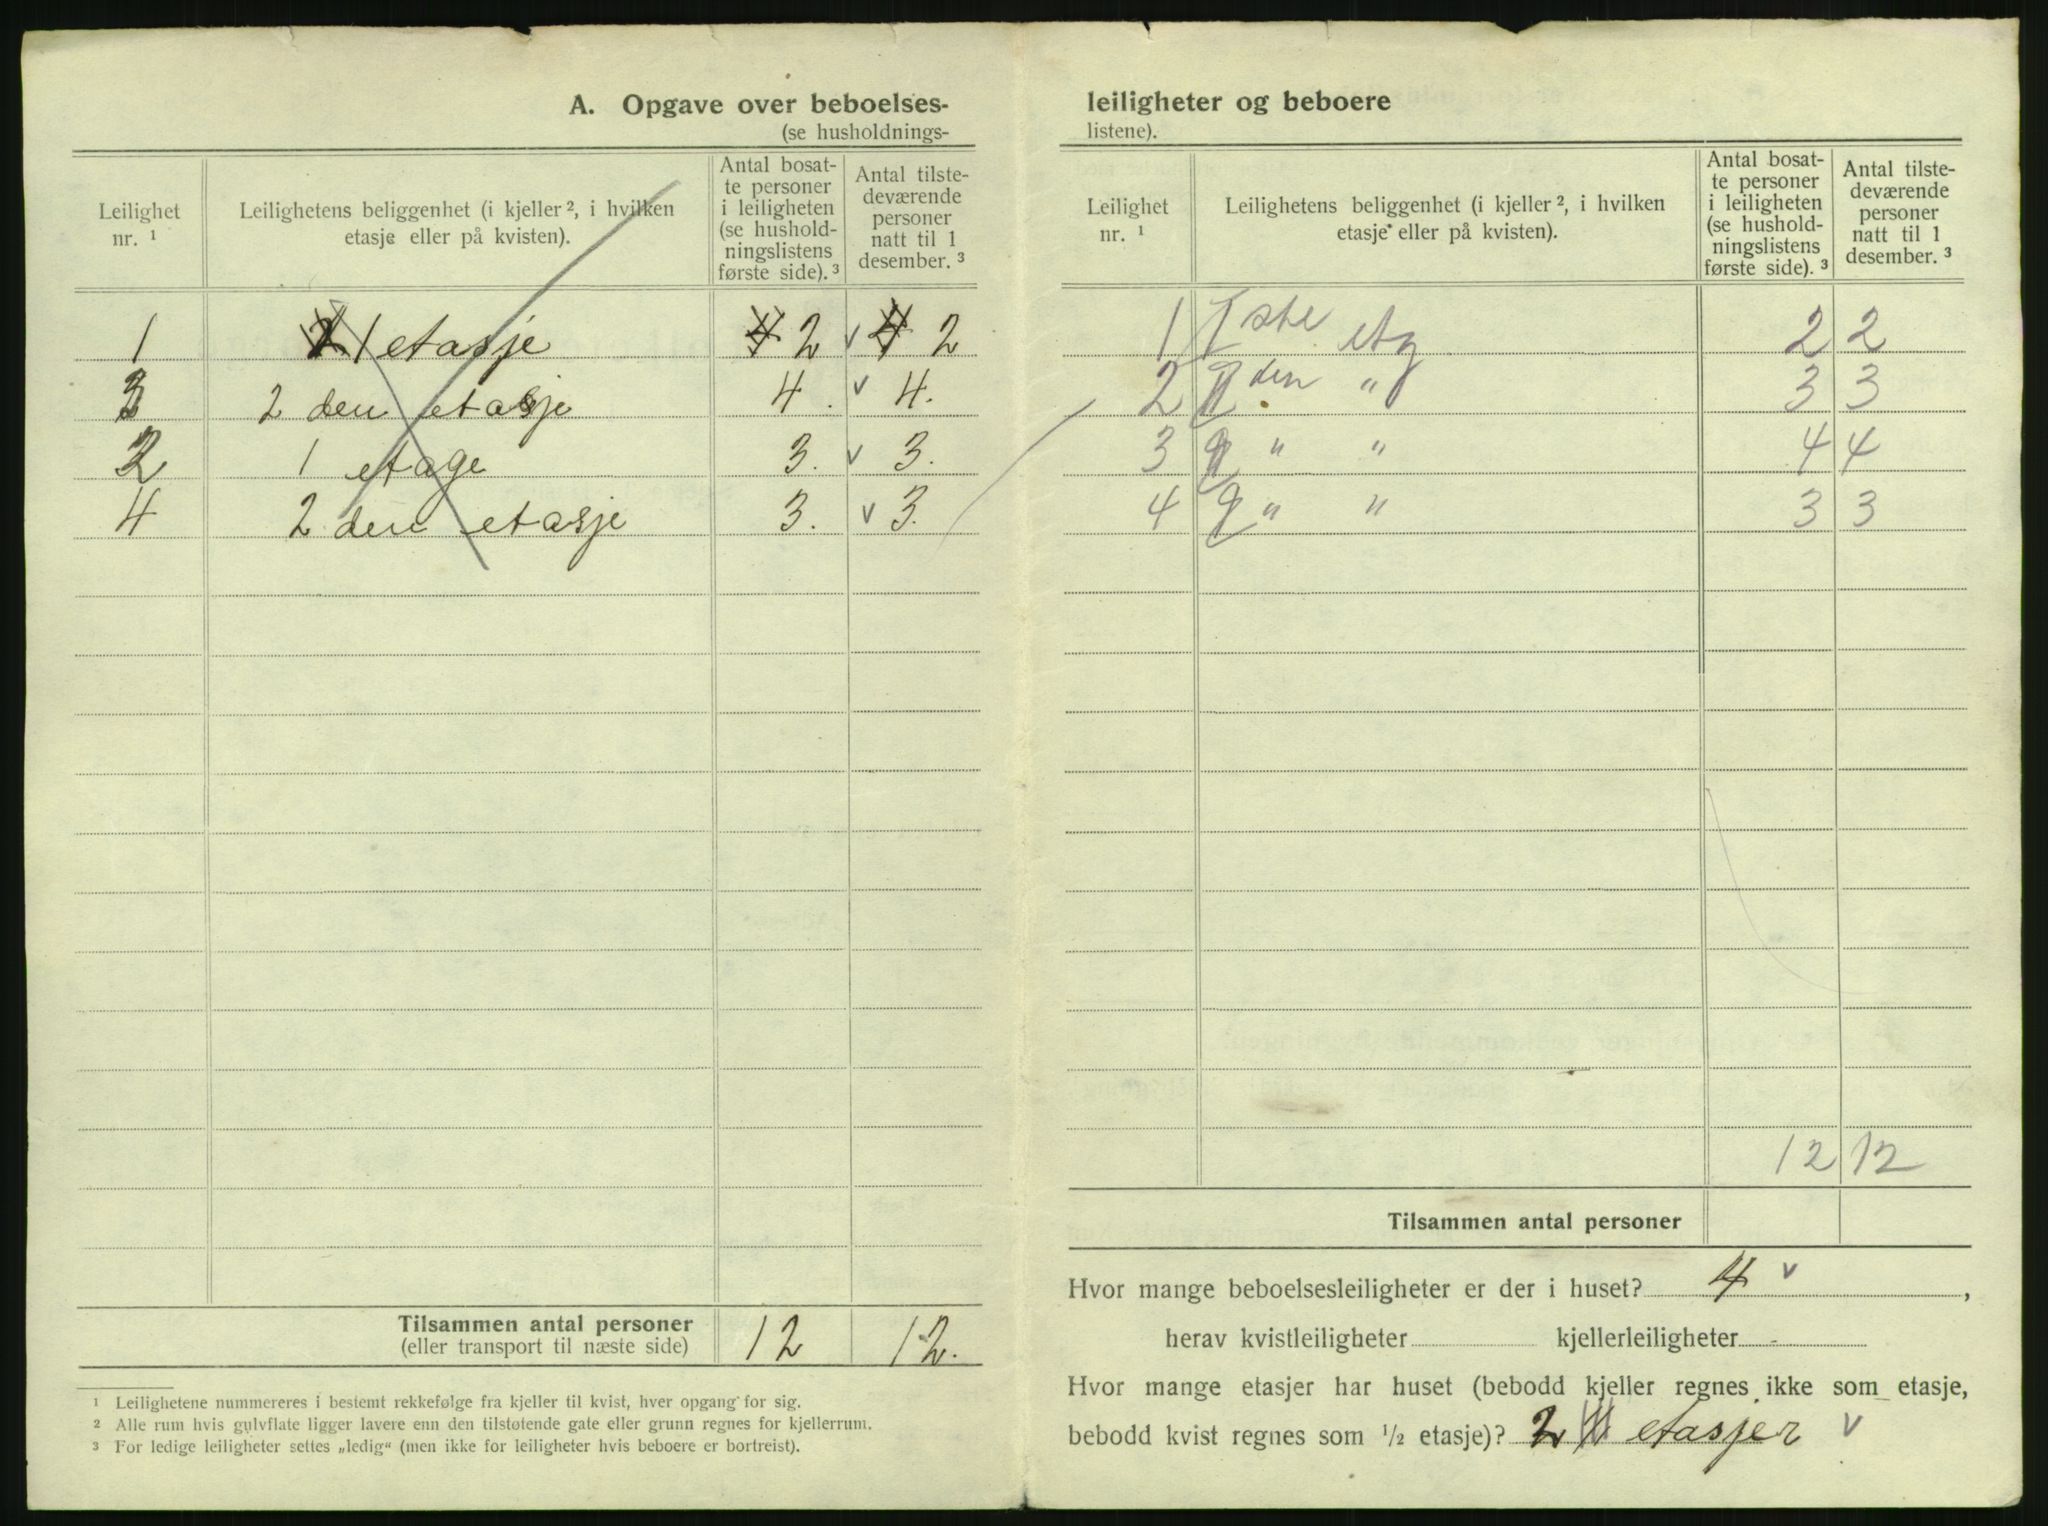 A. Opgave over beboelses-
(se husholdnings-
Leilighet nr. ¹
Leilighetens beliggenhet (i kjeller ², i hvilken etasje eller på kvisten).
Antal bosat-
te personer
i leiligheten
(se hushold-
ningslistens
første side). ³
Antal tilste-
deværende
personer
natt til 1
desember. ³
1 1 etasje 4 2 v 4 2
3 2 den etasje 4. v 4.
2 1 etage 3. v 3.
4 2 den etasje 3. v 3.
Tilsammen antal personer 12 12.
(eller transport til næste side)
¹ Leilighetene nummereres i bestemt rekkefølge fra kjeller til kvist, hver opgang for sig.
² Alle rum hvis gulvflate ligger lavere enn den tilstøtende gate eller grunn regnes for kjellerrum.
³ For ledige leiligheter settes „ledig“ (men ikke for leiligheter hvis beboere er bortreist).
leiligheter og beboere
listene).
Leilighet nr. ¹
Leilighetens beliggenhet (i kjeller ², i hvilken etasje eller på kvisten).
Antal bosat-
te personer
i leiligheten
(se hushold-
ningslistens
første side). ³
Antal tilste-
deværende
personer
natt til 1
desember. ³
1 1ste etg 2 2
2 den " 3 3
3 " " 4 4
4 " " 3 3
12 12
Tilsammen antal personer
Hvor mange beboelsesleiligheter er der i huset? 4 v ,
herav kvistleiligheter kjellerleiligheter -
Hvor mange etasjer har huset (bebodd kjeller regnes ikke som etasje,
bebodd kvist regnes som ½ etasje)? 2 etasjer v